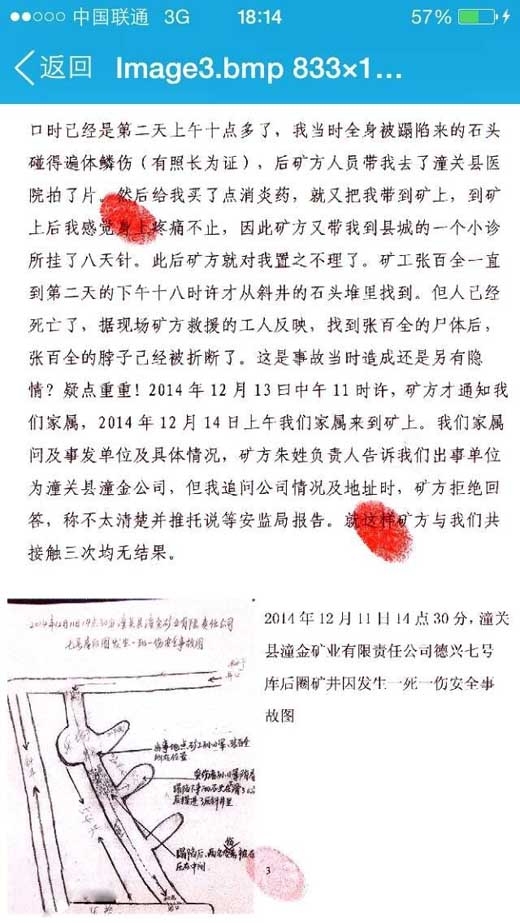 中国联通 3G 18:14 57%
返回 Image3.bmp 833×1...
口时已经是第二天上午十点多了，我当时全身被蹋陷来的石头
碰得遍体鳞伤（有照长为证），后矿方人员带我去了潼关县医
院拍了片。然后给我买了点消炎药，就又把我带到矿上，到矿
上后我感觉身上疼痛不止，因此矿方又带我到县城的一个小诊
所挂了八天针。此后矿方就对我置之不理了。矿工张百全一直
到第二天的下午十八时许才从斜井的石头堆里找到。但人已经
死亡了，据现场矿方救援的工人反映，找到张百全的尸体后，
张百全的脖子己经被折断了。这是事故当时造成还是另有隐
情？疑点重重！2014 年 12 月 13 日中午 11 时许，矿方才通知我
们家属，2014 年 12 月 14 日上午我们家属来到矿上。我们家属
问及事发单位及具体情况，矿方朱姓负责人告诉我们出事单位
为潼关县潼金公司，但我追问公司情况及地址时，矿方拒绝回
答，称不太清楚并推托说等安监局报告。就这样矿方与我们共
接触三次均无结果。
2014年12月11日14点30分潼关县潼金矿业有限责任公司
七号库后圈发生一死一伤安全事故图
2014 年 12 月 11 日 14 点 30 分，潼关
县潼金矿业有限责任公司德兴七号
库后圈矿井因发生一死一伤安全事
故图
所在位置
压在中间
3